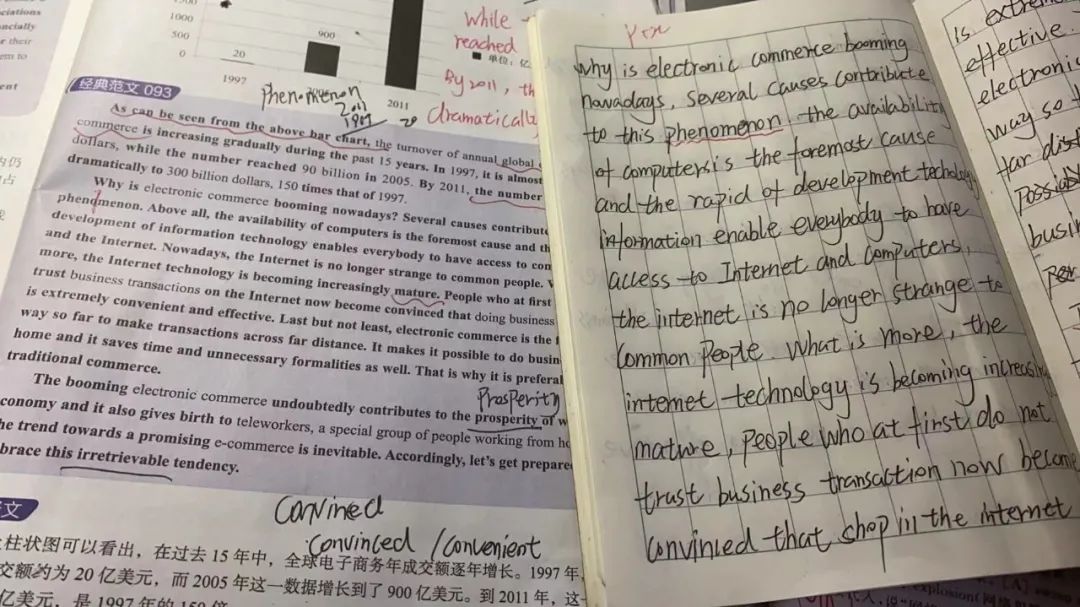 1000
500
0
20
900
1997
2011
单位:亿
while
reached
By 2011, th
dramatically
经典范文 093
phenomenon
2011
1997
As can be seen from the above bar chart, the turnover of annual global
commerce is increasing gradually during the past 15 years. In 1997, it is almost
dollars, while the number reached 90 billion in 2005. By 2011, the number
dramatically to 300 billion dollars, 150 times that of 1997.
Why is electronic commerce booming nowadays? Several causes contribute
phenomenon. Above all, the availability of computers is the foremost cause and th
development of information technology enables everybody to have access to com
and the Internet. Nowadays, the Internet is no longer strange to common people. W
more, the Internet technology is becoming increasingly mature. People who at first
trust business transactions on the Internet now become convinced that doing business
is extremely convenient and effective. Last but not least, electronic commerce is the f
way so far to make transactions across far distance. It makes it possible to do busin
home and it saves time and unnecessary formalities as well. That is why it is preferal
traditional commerce.
prosperity
The booming electronic commerce undoubtedly contributes to the prosperity of w
conomy and it also gives birth to teleworkers, a special group of people working from ho
he trend towards a promising e-commerce is inevitable. Accordingly, let's get prepared
brace this irretrievable tendency.
Convined
Convinced / convenient
文
柱状图可以看出，在过去 15 年中，全球电子商务年成交额逐年增长。1997 年，
交额约为 20 亿美元，而 2005 年这一数据增长到了 900 亿美元。到 2011 年，这一
亿美元，是 1997 年的 150 倍
why is electronic commerce booming
nowadays, several causes contribute
to this phenomenon. the availability
of computers is the foremost cause
and the rapid of development technology
information enable everybody to have
access to Internet and computers,
the internet is no longer strange to
common people. What is more, the
internet technology is becoming increasing
mature, people who at first do not
trust business transaction now become
convinced that shop in the internet
is extrem
effective.
electronic
way so f
far dist
possiab
busin